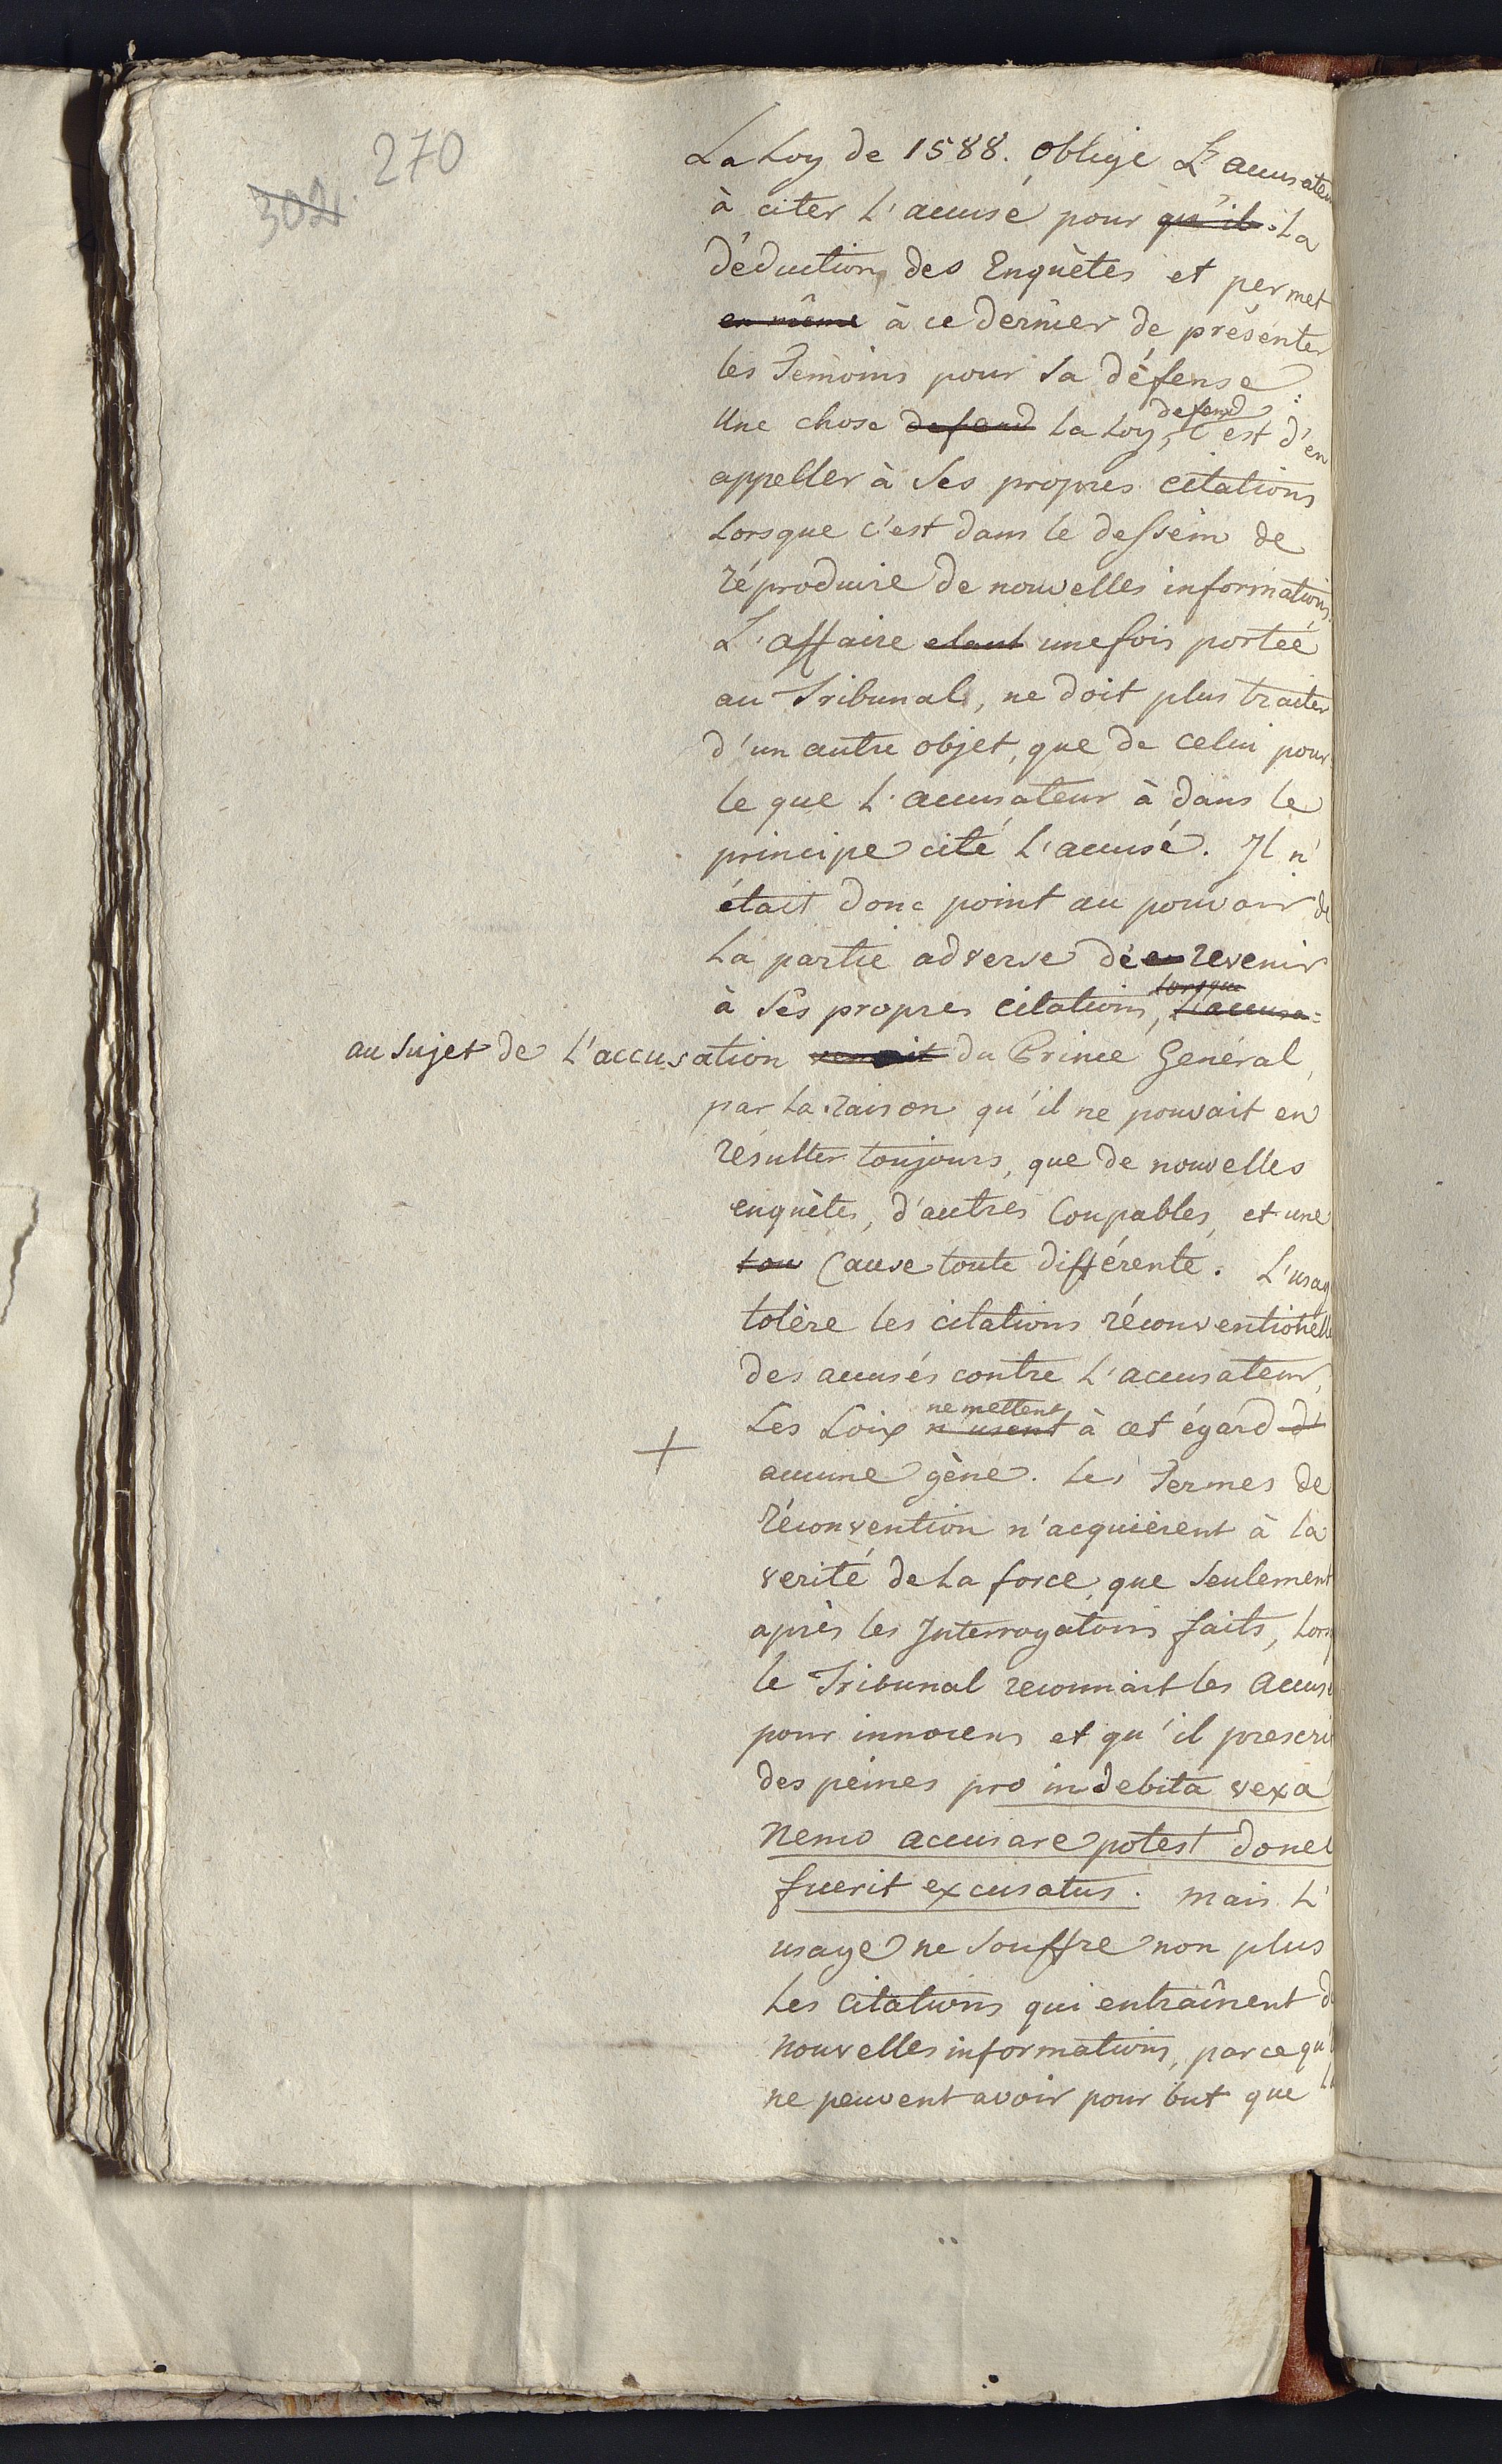 270
302
La Loy de 1588. oblige L'accusateur
à citer L'accusé pour qu'il La
déduction des Enquètes et permet
en même à ce dernier de présenter
les Temoins pour sa défense :
defend
Une chose defend La Loy, c'est d'en
appeller à ses propres citations
Lorsque c'est dans le dessein de
réproduire de nouvelles informations.
L'affaire etant une fois portée
au Tribunal, ne doit plus traiter
d'un autre objet, que de celui pour
le que L'accusateur à dans le
principe cité L'accusé. Il n'
était donc point au pouvoir de
La partie adverse de en revenir
Lorsque
à ses propres citations, L'accusa=
au sujet de L'accusation venoit du Prince Genéral,
par La raison qu'il ne pouvait en
résulter toujours, que de nouvelles
enquètes, d'autres Coupables, et une
tou Cause toute différente. L'usag
tolère les citations réconventionelle
des accusés contre L'accusateur,
ne mettent
Les Loix n'usent à cet égard d'
+
aucune gène. Les Termes de
réconvention n'acquièrent à la
verité de La force, que seulement
après les Interrogatoirs faits, Lorsq
le Tribunal reconnait les accusé
pour innocens et qu'il prescrit
des peines pro indebita vexa
Nemo accusare potest donec
fuerit excusatus. mais L'
usage ne souffre non plus
Les citations qui entraînent d
nouvelles informations, parce qu'
ne peuvent avoir pour but que